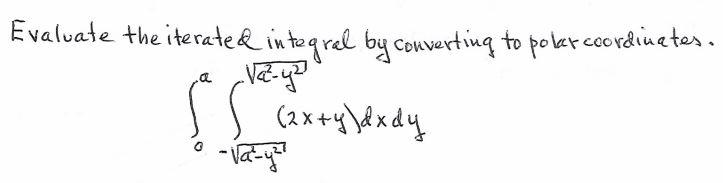 Evaluate the iterated integral by converting to polar coordinates.
∫₀ᵃ ∫_{-√(a²-y²)}^{√(a²-y²)} (2x+y)dxdy